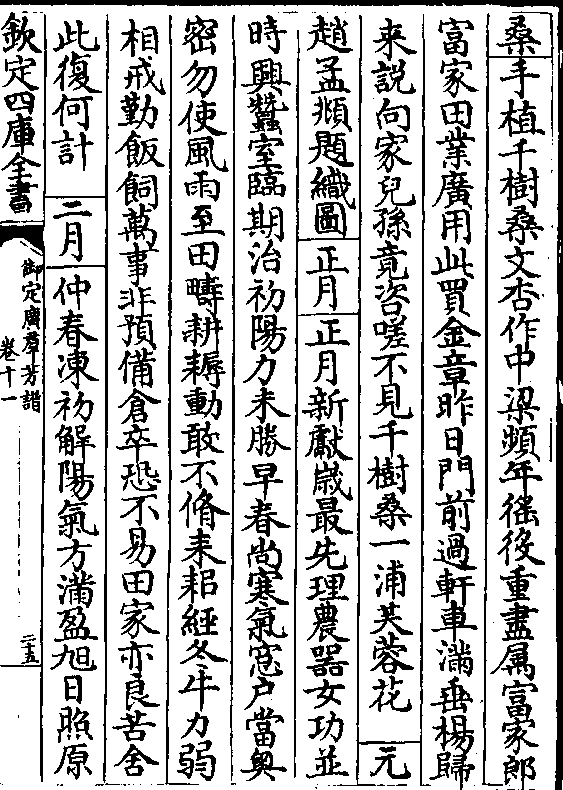 桑手植千樹桑文杏作中梁頻年徭役重盡屬富家郎
富家田業廣用此買金章昨日門前過軒車滿垂楊歸
来説向家兒孫竟咨嗟不見千樹桑一浦芙蓉花 元
趙孟頫題織圖 正月 正月新獻歲最先理農器女功並
時興蠶室臨期治初陽力未勝早春尚寒氣窓户當奥
密勿使風雨至田疇耕耨動敢不脩耒耜經冬牛力弱
相戒勤飯飼萬事非預備倉卒恐不易田家亦良苦舍
此復何計 二月 仲春凍初解陽氣方滿盈旭日照原
欽定四庫全書 御定廣羣芳譜 卷十一 二十五